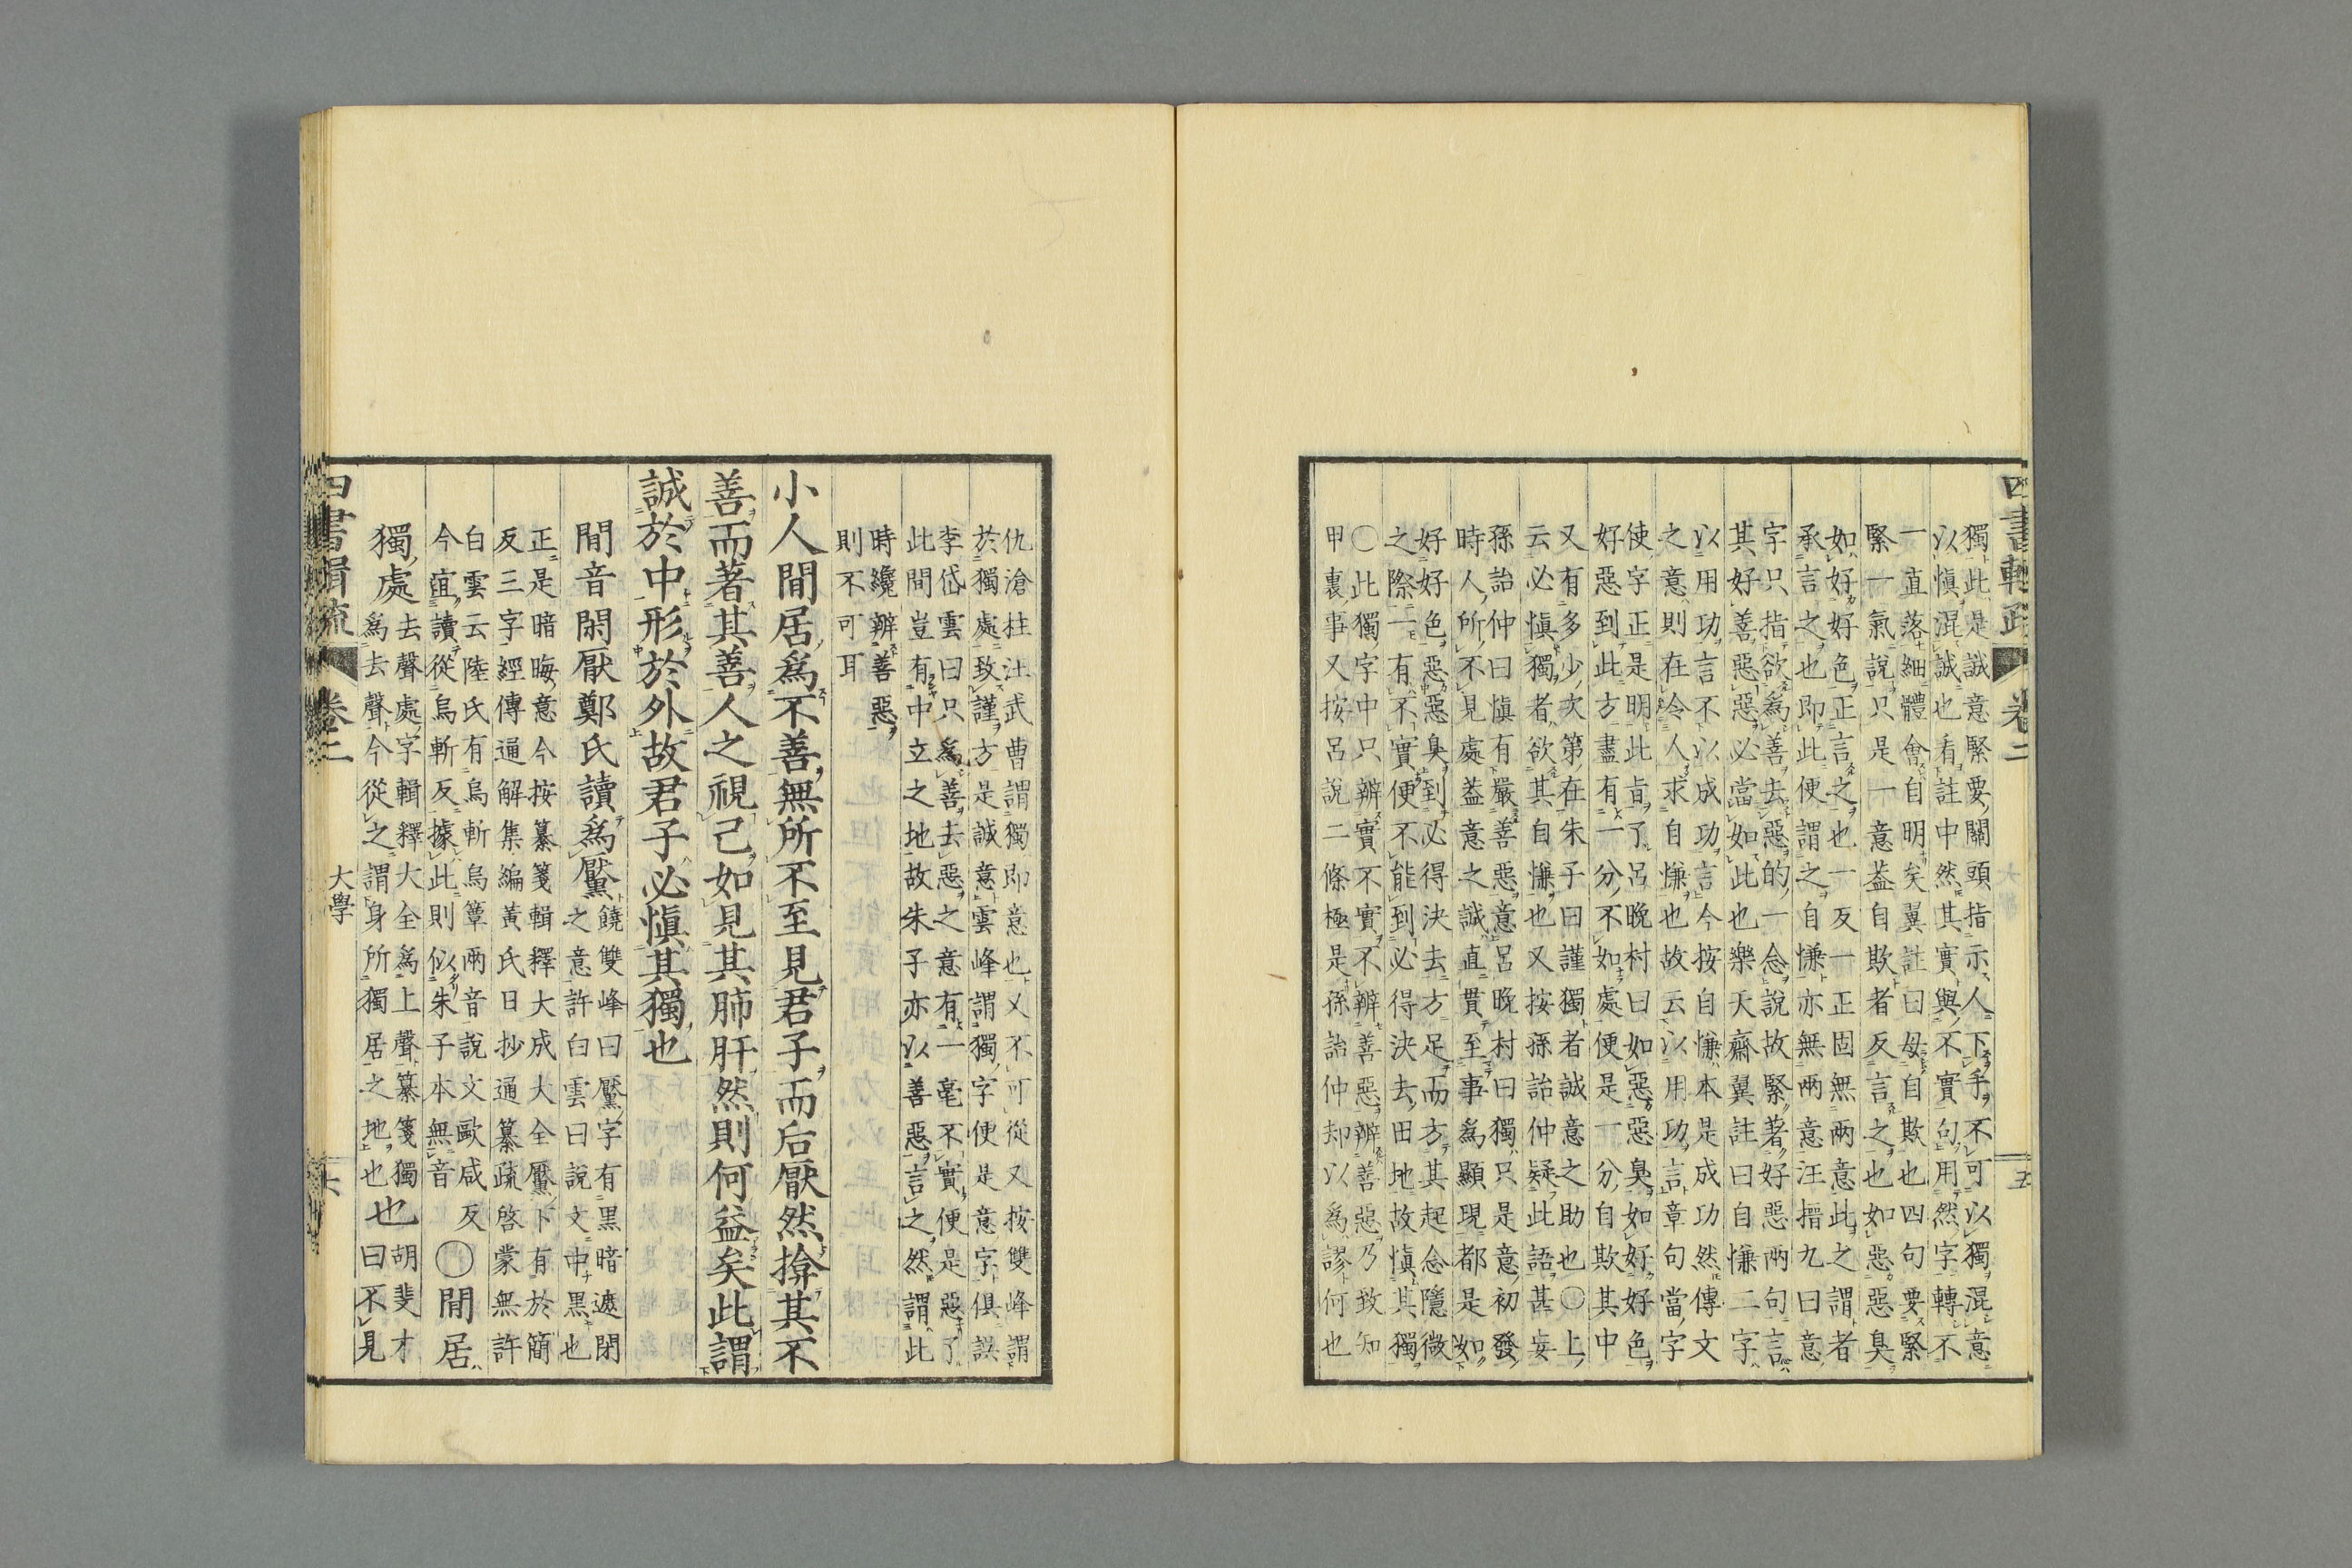 四書輯疏　卷二　五
獨此是誠意緊要關頭指示人下手不可以獨混意
以愼混誠也看註中然其實與不實句用然字轉不
一直落細體會自明矣翼註曰毋自欺也四句要緊
緊一氣說只是一意葢自欺者反言之也如惡惡臭
如好好色正言之也一反一正固無兩意此之謂者
承言之也即此便謂之自慊亦無兩意汪搢九曰意
字只指欲爲善去惡的一念說故緊著好惡兩句言
其好善惡惡必當如此也樂天齋翼註曰自慊二字
以用功言不以成功言今按自慊本是成功然傳文
之意則在令人求自慊也故云以用功言章句當字
使字正是明此旨了呂晩村曰如惡惡臭如好好色
好惡到此方盡有一分不如處便是一分自欺其中
又有多少次第在朱子曰謹獨者誠意之助也〇上
云必愼獨者欲其自慊也又按孫詒仲疑此語甚妄
孫詒仲曰愼有嚴善惡意呂晩村曰獨只是意初發
時人所不見處葢意之誠直貫至事爲顯現都是如
好好色惡惡臭到必得決去方足而方其起念隱微
之際一有不實便不能到必得決去田地故愼其獨
〇此獨字中只辨實不實不辨善惡辨善惡乃致知
甲裏事又按呂說二條極是孫詒仲却以爲謬何也
仇滄柱汪武曹謂獨即意也又不可從又按雙峰謂
於獨處致謹方是誠意雲峰謂獨字便是意字俱誤
李岱雲曰只爲善去惡之意有一毫不實便是惡了
此間豈有中立之地故朱子亦以善惡言之然謂此
時纔辨善惡
則不可耳
小人閒居爲不善無所不至見君子而后厭然揜其不
善而著其善人之視己如見其肺肝然則何益矣此謂
誠於中形於外故君子必愼其獨也
閒音閑厭鄭氏讀爲黶
饒雙峰曰黶字有黑暗遮閉
之意許白雲曰說文中黒也
正是暗晦意今按纂箋輯釋大成大全黶下有於簡
反三字經傳通解集編黃氏日抄通纂疏啓蒙無許
白雲云陸氏有烏斬烏簟兩音說文歐咸反
今誼讀從烏斬反據此則似朱子本無音
〇閒居
獨處
去聲處字輯釋大全爲上聲纂箋獨
爲去聲今從之謂身所獨居之地也
也
胡斐才
曰不見
四書輯疏　卷二　大學　六